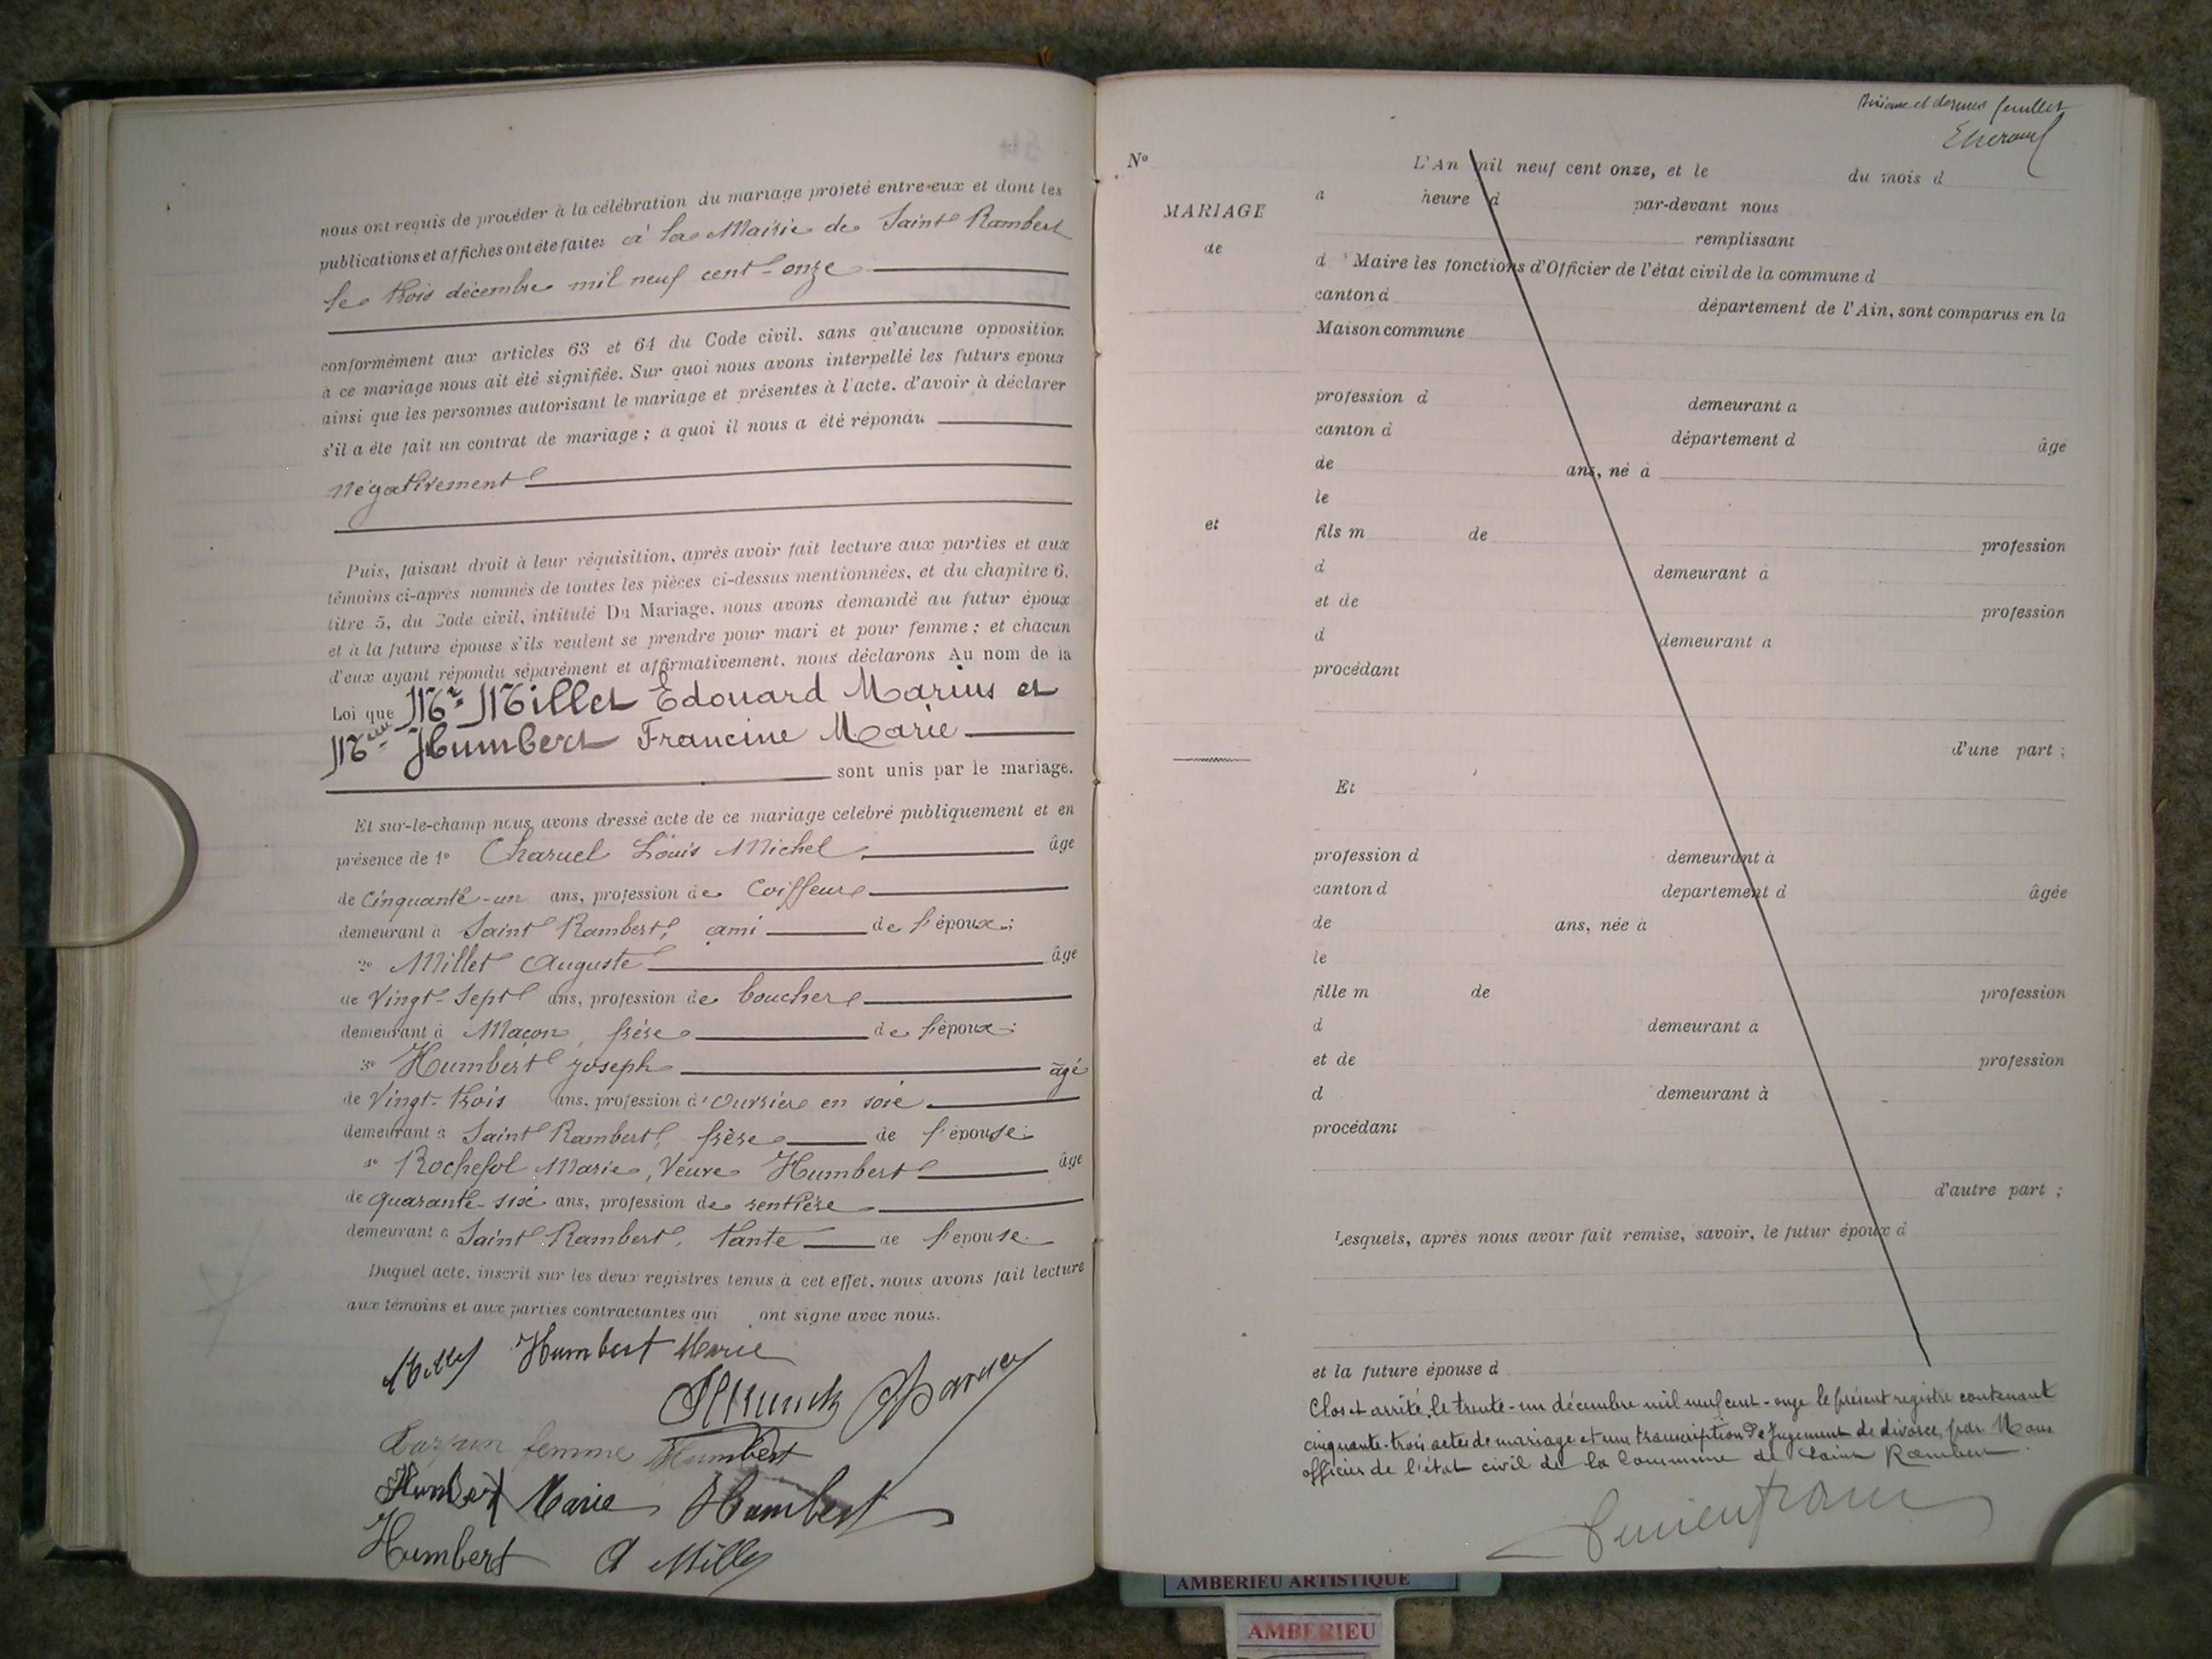 nous ont requis de procéder à la célébration du mariage projeté entre eux et dont les
publications et affiches ont été faites à la Mairie de Saint Rambert
le trois décembre mil neuf cent onze
conformément aux articles 63 et 64 du Code civil, sans qu'aucune opposition
à ce mariage nous ait été signifiée. Sur quoi nous avons interpellé les futurs époux
ainsi que les personnes autorisant le mariage et présentes à l'acte, d'avoir à déclarer
s'il a été fait un contrat de mariage ; a quoi il nous a été répondu
négativement
Puis, faisant droit à leur réquisition, après avoir fait lecture aux parties et aux
témoins ci-après nommés de toutes les pièces ci-dessus mentionnées, et du chapitre 6,
titre 5, du Code civil, intitulé Du Mariage, nous avons demandé au futur époux
et à la future épouse s'ils veulent se prendre pour mari et pour femme ; et chacun
d'eux ayant répondu séparément et affirmativement, nous déclarons Au nom de la
Loi que Mr Millet Edouard Marius et
Melle Humbert Francine Marie
sont unis par le mariage.
Et sur-le-champ nous avons dressé acte de ce mariage célébré publiquement et en
présence de 1° Charuel Louis Michel âgé
de Cinquante-un ans, profession de Coiffeur
demeurant à Saint Rambert, ami de l'époux ;
2° Millet Auguste âgé
de Vingt-Sept ans, profession de boucher
demeurant à Macon, frère de l'époux ;
3° Humbert Joseph âgé
de Vingt-trois ans, profession d'ouvrier en soie
demeurant à Saint Rambert, frère de l'épouse ;
4° Rochefol Marie, Veuve Humbert âgé
de quarante-six ans, profession de rentière
demeurant à Saint Rambert, tante de l'épouse.
Duquel acte, inscrit sur les deux registres tenus à cet effet, nous avons fait lecture
aux témoins et aux parties contractantes qui ont signé avec nous.
Humbert Marie
femme Humbert
Humbert Marie Humbert
Humbert A Millet
et dernier feuillet
N°
MARIAGE
de
et
L'An mil neuf cent onze, et le du mois d
a heure d par-devant nous
remplissant
d Maire les fonctions d'Officier de l'état civil de la commune d
canton d département de l'Ain, sont comparus en la
Maison commune
profession d demeurant à
canton d département d âgé
de ans, né à
le
fils m de profession
d demeurant à
et de profession
d demeurant à
procédant
d'une part ;
Et
profession d demeurant à
canton d département d âgée
de ans, née à
le
fille m de profession
d demeurant à
et de profession
d demeurant à
procédant
d'autre part ;
Lesquels, après nous avoir fait remise, savoir, le futur époux d
et la future épouse d
Clos et arrêté le trente-un décembre mil neuf cent-onze le présent registre contenant
cinquante-trois actes de mariage et une transcription de Jugement de divorce, par Nous
officier de l'état civil de la Commune de Saint Rambert
AMBERIEU ARTISTIQUE
AMBERIEU